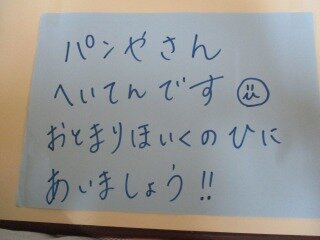 パンやさん
へいてんです
おとまりほいくのひに
あいましょう!!